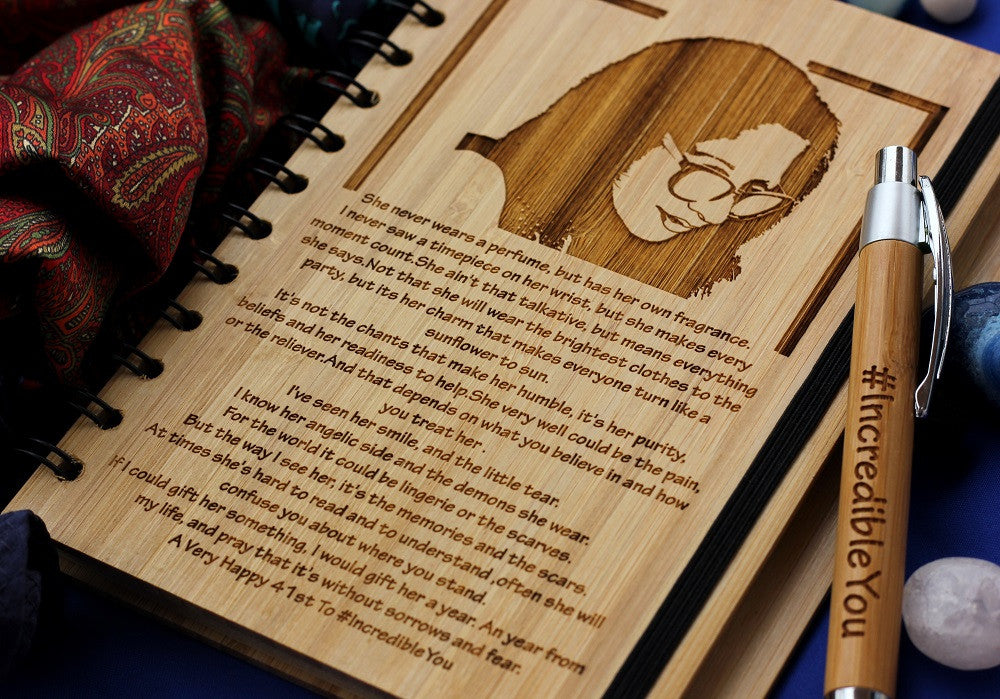 She never wears a perfume, but has her own fragrance.
I never saw a timepiece on her wrist, but she makes every
moment count.She ain't that talkative, but means everything
she says.Not that she will wear the brightest clothes to the
party, but its her charm that makes everyone turn like a
sunflower to sun.
It's not the chants that make her humble, it's her purity,
beliefs and her readiness to help.She very well could be the pain,
or the reliever.And that depends on what you believe in and how
you treat her .
I've seen her smile, and the little tear.
I know her angelic side and the demons she wear.
For the world it could be lingerie or the scarves.
But the way I see her, it's the memories and the scars.
At times she's hard to read and to understand ,often she will
confuse you about where you stand.
If I could gift her something, I would gift her a year. An year from
my life, and pray that it's without sorrows and fear.
A Very Happy 41st To #IncredibleYou
#IncredibleYou